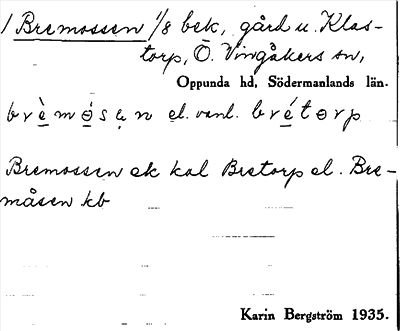 1 Bremossen 1/8 bek, gård u. Klas-
torp, Ö. Vingåkers sn,
Oppunda hd, Södermanlands län.
brèmósan el. vanl. brétorp
Bremossen ek kal Bretorp el. Bre-
måsen kb
Karin Bergström 1935.